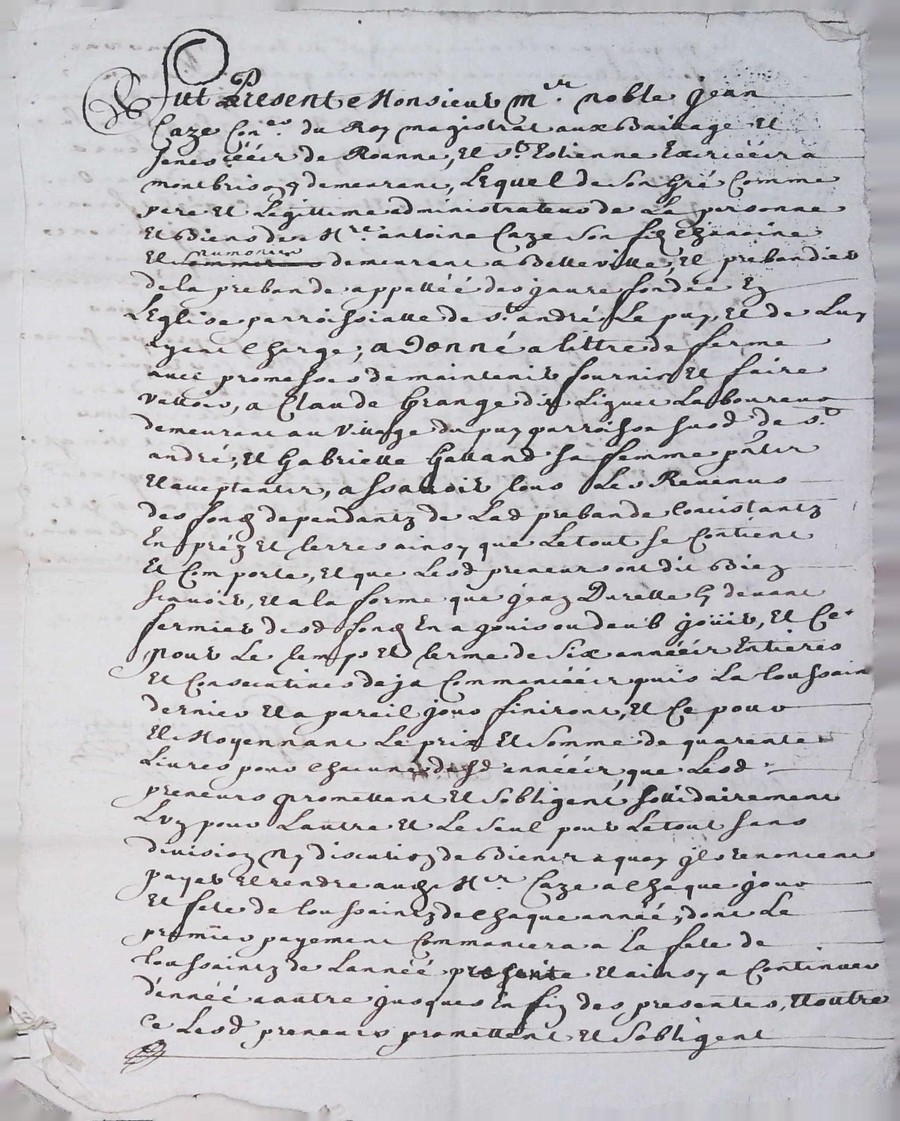 Fut Present Monsieur mr noble jean
Caze Coner du Roy magistrat aux Bailiage Et
senechéé de Roanne, Et st Estienne
montbrison y demeurant, Lequel de son gré Comme
pere Et Legittime administrateur de La personne
Et Biens de Mre antoine Caze son fils Chanoine
Et demeurant a Belleville, Et prebandier
de la prebande appelléé des jaure fondée En
L'Eglise parroissialle de st andré Le puy, Et de Luy
ayant Charge, a Donné a tittre de ferme
avec promesses de maintenir fournir Et faire
valloir, a Claude Grange dit Liguet Laboureur
demeurant au Village du puy parroisse susd de st
andré, Et Gabrielle Galland sa femme pntr
Et acceptantr, assavoir tous Les Revenus
des fonds dependantz de Lad prebande Concistantz
En préz Et terres ainsy que Le tout se Contient
Et Comporte, Et que Lesd preneurs ont dit Bien
scavoir, Et a la forme que jean Durelle Cy devant
fermier desd fondz En a joui ou deub joüir, Et Ce
pour Le temps Et terme de six annéér Entieres
Et Consecutives deja Commancéér puis La toussaint
dernier Et a pareil jour finiront, Et Ce pour
Et Moyennant Le prix Et somme de quarente
Livres pour chacune desd annéér, que Lesd
preneurs promettent Et sobligent sollidairement
Lun pour Lautre Et Le seul pour Le tout sans
division Ny discution de Biens a quoy jls renoncent
payer Et rendre aud Mr Caze a chaque jour
Et fete de toussaintz de chaque annéé, dont Le
premier payement Commancera a la fete de
toussaintz de Lannéé presente Et ainsy a Continuer
d'annéé a autre jusques En fin des presentes, Et outre
ce Lesd preneurs promettent Et sobligent